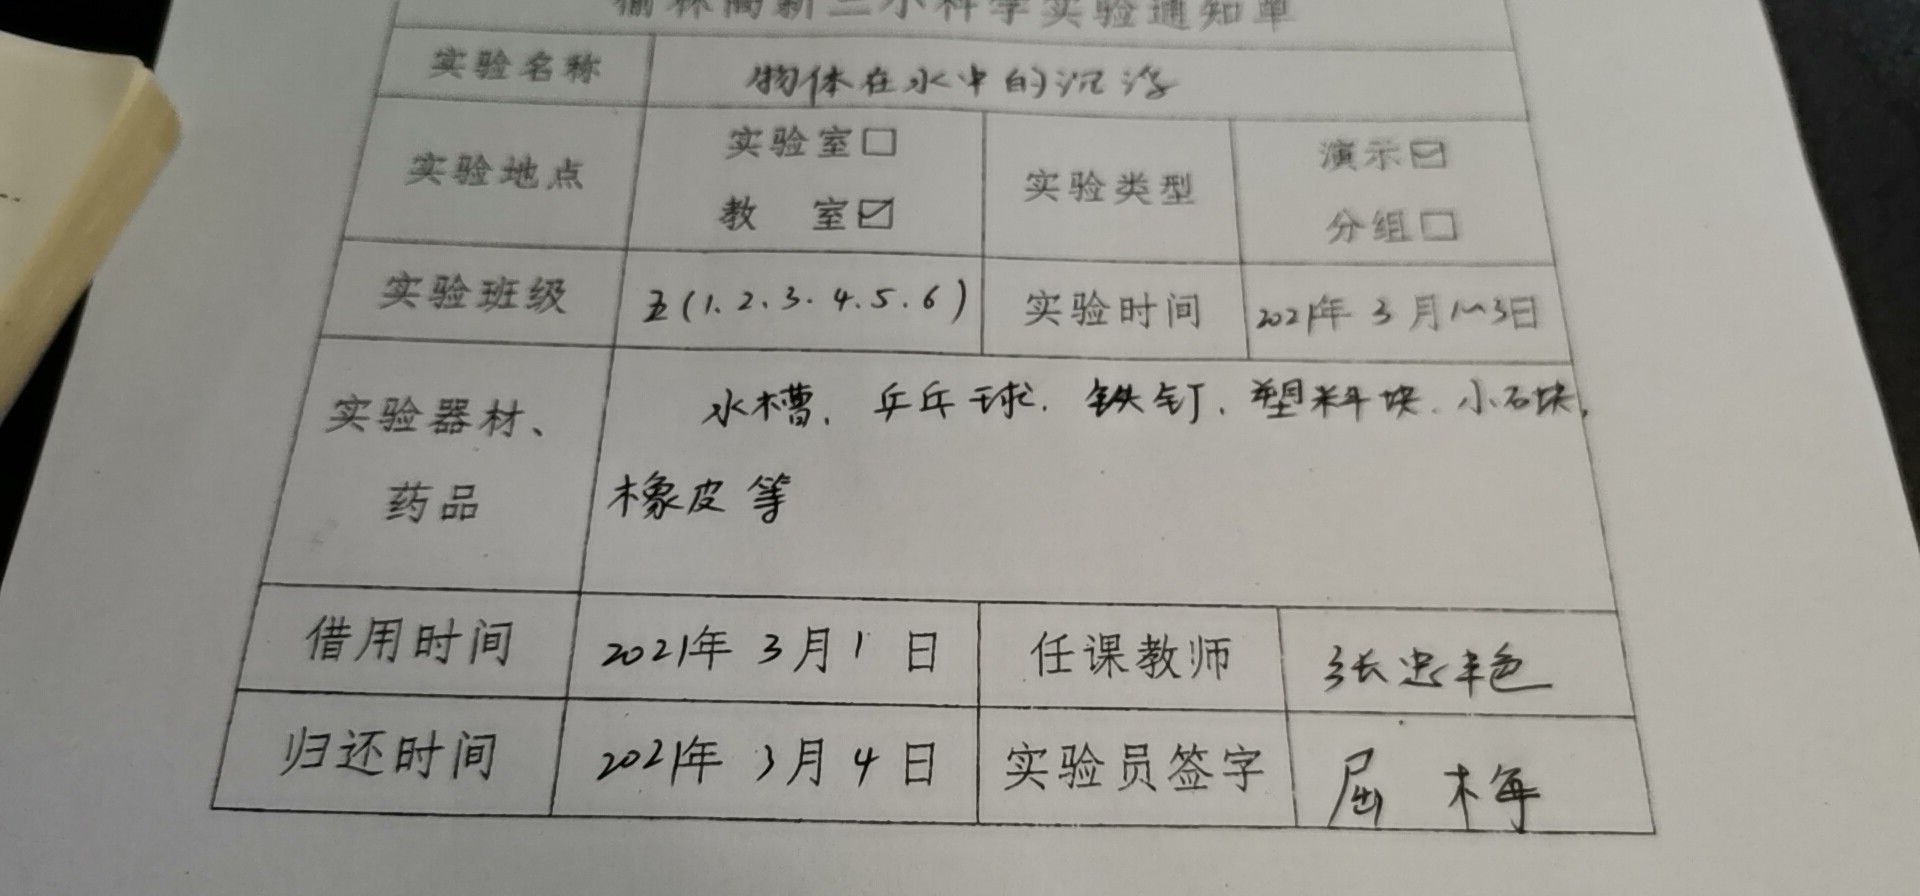 榆林高新三小科学实验通知单
实验名称 物体在水中的沉浮
实验地点 实验室□ 教 室☑ 实验类型 演示☑ 分组□
实验班级 五(1.2.3.4.5.6) 实验时间 2021年3月1~3日
实验器材、药品 水槽、乒乓球、铁钉、塑料块、小石块、
橡皮等
借用时间 2021年3月1日 任课教师 张忠艳
归还时间 2021年3月4日 实验员签字 屈梅